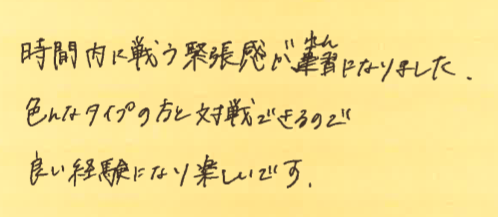 時間内に戦う緊張感が練習になりました。
色んなタイプの方と対戦できるので
良い経験になり楽しいです。